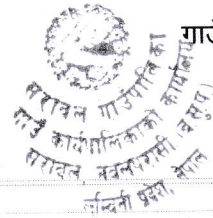 गाउँ
सरावल गाउँपालिका
गाउँ कार्यपालिकाको कार्यालय
सरावल, नवलपरासी (ब.सु.प.)
लुम्बिनी प्रदेश, नेपाल